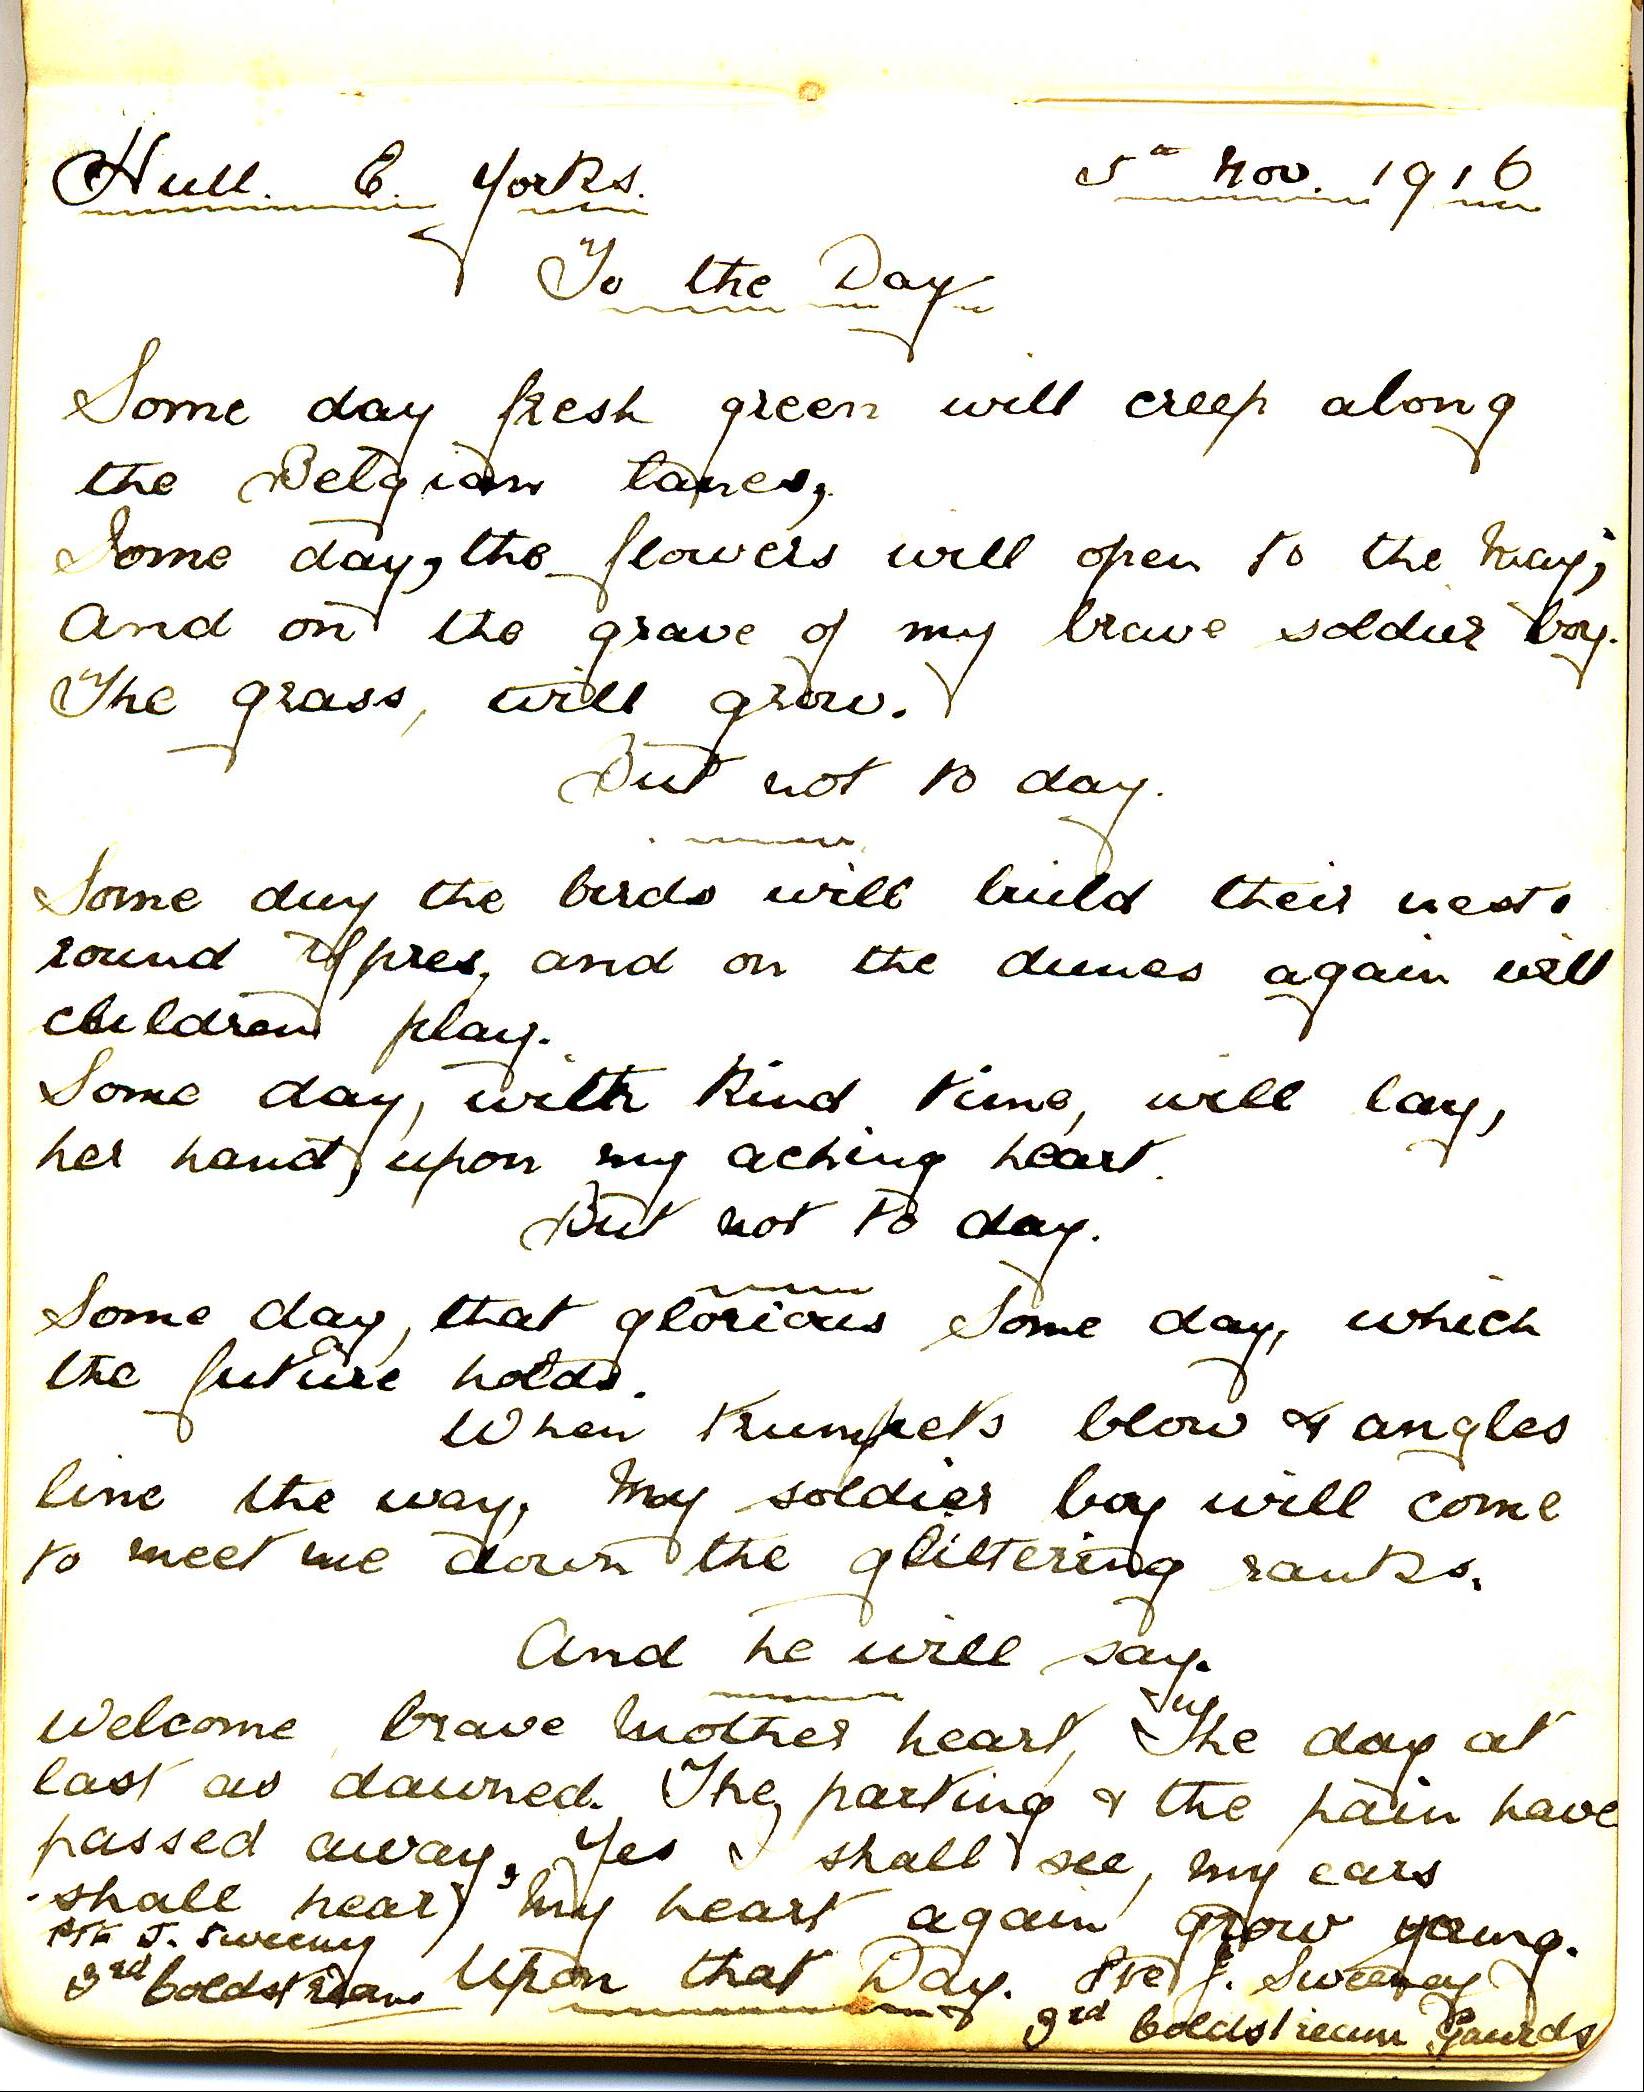 Hull. E. Yorks. 5th Nov. 1916
To the Day
Some day fresh green will creep along
the Belgian lanes,
Some day, the flowers will open to the May;
And on the grave of my brave soldier boy.
The grass, will grow.
But not to day.
Some day the birds will build their nests
round Ypres, and on the dunes again will
children play.
Some day, with kind time, will lay,
her hand, upon my aching heart.
But not to day.
Some day, that glorious Some day, which
the future holds.
When trumpets blow & angles
line the way, My soldier boy will come
to meet me down the glittering ranks.
And he will say.
Welcome brave Mother heart, The day at
last as dawned. The parting & the pain have
passed away. Yes I shall see, my ears
shall hear, My heart again grow young.
Pte J. Sweeney
3rd Coldstream Upon that Day. Pte J. Sweeney
3rd Coldstream Gaurds